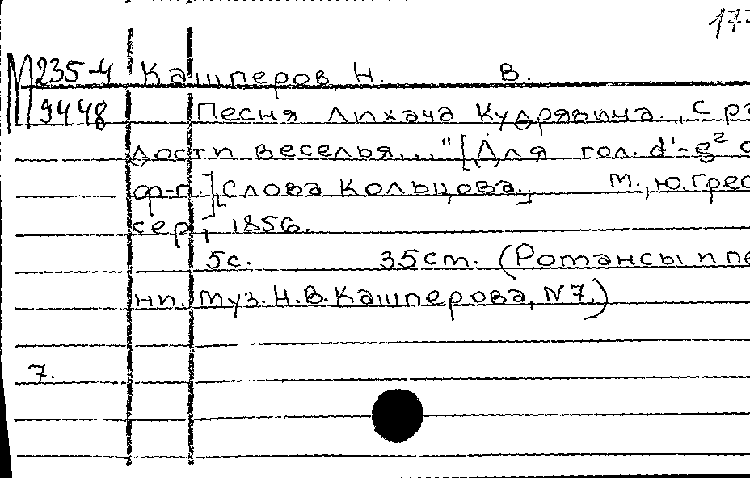 177
М 235-4 Кашперов Н. В.
9448 Песня Лихача Кудрявина. "С ра
дости веселья..." [Для гол. d'-g² с
ф-п.] [Слова Кольцова.] М., Ю. Грес
сер, 1856.
5с. 35см. (Романсы и пе
ни. муз. Н.В. Кашперова, N7.)
7